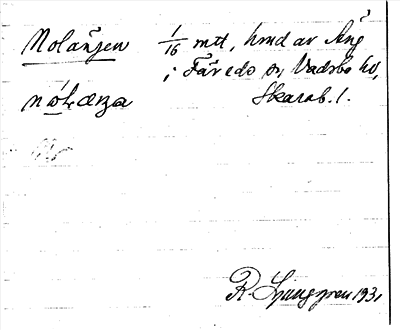 Nolängen 1/16 mtl, hmd av Äng
i Färedo sn, Vadsbo hd,
Skarab. l.
R. Ljunggren 1931